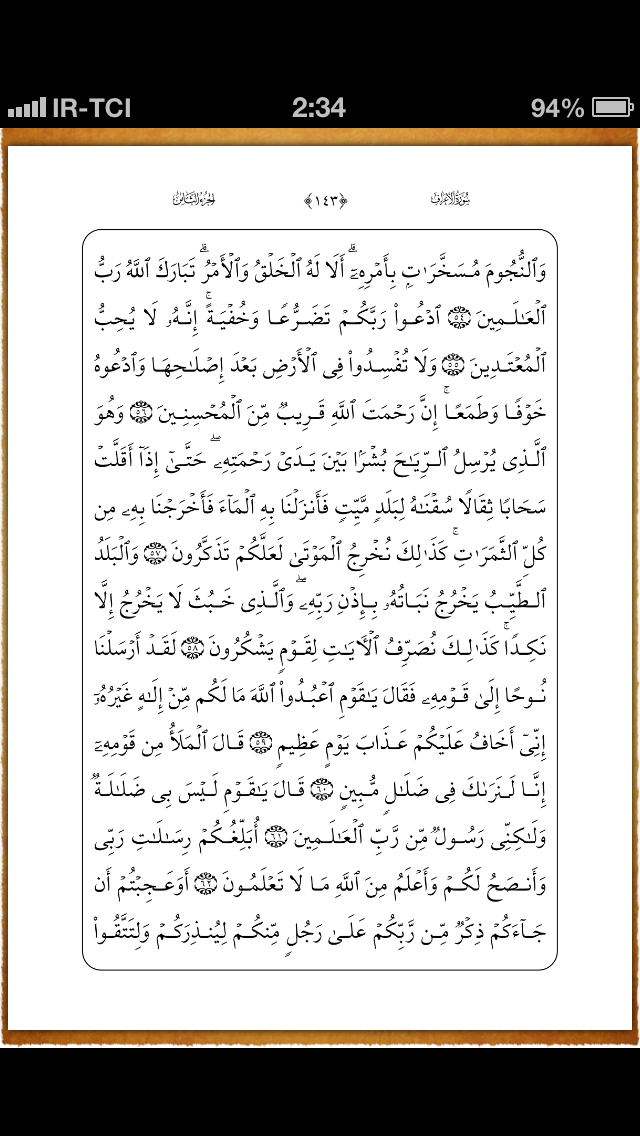 IR-TCI 2:34 94%
سُورَةُ الأَعۡرَافِ ﴿١٤٣﴾ الجُزۡءُ الثَّامِنُ
وَٱلنُّجُومَ مُسَخَّرَٰتِۭ بِأَمۡرِهِۦٓۗ أَلَا لَهُ ٱلۡخَلۡقُ وَٱلۡأَمۡرُۗ تَبَارَكَ ٱللَّهُ رَبُّ
ٱلۡعَٰلَمِينَ ٥٤ ٱدۡعُواْ رَبَّكُمۡ تَضَرُّعٗا وَخُفۡيَةًۚ إِنَّهُۥ لَا يُحِبُّ
ٱلۡمُعۡتَدِينَ ٥٥ وَلَا تُفۡسِدُواْ فِي ٱلۡأَرۡضِ بَعۡدَ إِصۡلَٰحِهَا وَٱدۡعُوهُ
خَوۡفٗا وَطَمَعًاۚ إِنَّ رَحۡمَتَ ٱللَّهِ قَرِيبٞ مِّنَ ٱلۡمُحۡسِنِينَ ٥٦ وَهُوَ
ٱلَّذِي يُرۡسِلُ ٱلرِّيَٰحَ بُشۡرَۢا بَيۡنَ يَدَيۡ رَحۡمَتِهِۦۖ حَتَّىٰٓ إِذَآ أَقَلَّتۡ
سَحَابٗا ثِقَالٗا سُقۡنَٰهُ لِبَلَدٖ مَّيِّتٖ فَأَنزَلۡنَا بِهِ ٱلۡمَآءَ فَأَخۡرَجۡنَا بِهِۦ مِن
كُلِّ ٱلثَّمَرَٰتِۚ كَذَٰلِكَ نُخۡرِجُ ٱلۡمَوۡتَىٰ لَعَلَّكُمۡ تَذَكَّرُونَ ٥٧ وَٱلۡبَلَدُ
ٱلطَّيِّبُ يَخۡرُجُ نَبَاتُهُۥ بِإِذۡنِ رَبِّهِۦۖ وَٱلَّذِي خَبُثَ لَا يَخۡرُجُ إِلَّا
نَكِدٗاۚ كَذَٰلِكَ نُصَرِّفُ ٱلۡأٓيَٰتِ لِقَوۡمٖ يَشۡكُرُونَ ٥٨ لَقَدۡ أَرۡسَلۡنَا
نُوحًا إِلَىٰ قَوۡمِهِۦ فَقَالَ يَٰقَوۡمِ ٱعۡبُدُواْ ٱللَّهَ مَا لَكُم مِّنۡ إِلَٰهٍ غَيۡرُهُۥٓ
إِنِّيٓ أَخَافُ عَلَيۡكُمۡ عَذَابَ يَوۡمٍ عَظِيمٖ ٥٩ قَالَ ٱلۡمَلَأُ مِن قَوۡمِهِۦٓ
إِنَّا لَنَرَىٰكَ فِي ضَلَٰلٖ مُّبِينٖ ٦٠ قَالَ يَٰقَوۡمِ لَيۡسَ بِي ضَلَٰلَةٞ
وَلَٰكِنِّي رَسُولٞ مِّن رَّبِّ ٱلۡعَٰلَمِينَ ٦١ أُبَلِّغُكُمۡ رِسَٰلَٰتِ رَبِّي
وَأَنصَحُ لَكُمۡ وَأَعۡلَمُ مِنَ ٱللَّهِ مَا لَا تَعۡلَمُونَ ٦٢ أَوَعَجِبۡتُمۡ أَن
جَآءَكُمۡ ذِكۡرٞ مِّن رَّبِّكُمۡ عَلَىٰ رَجُلٖ مِّنكُمۡ لِيُنذِرَكُمۡ وَلِتَتَّقُواْ